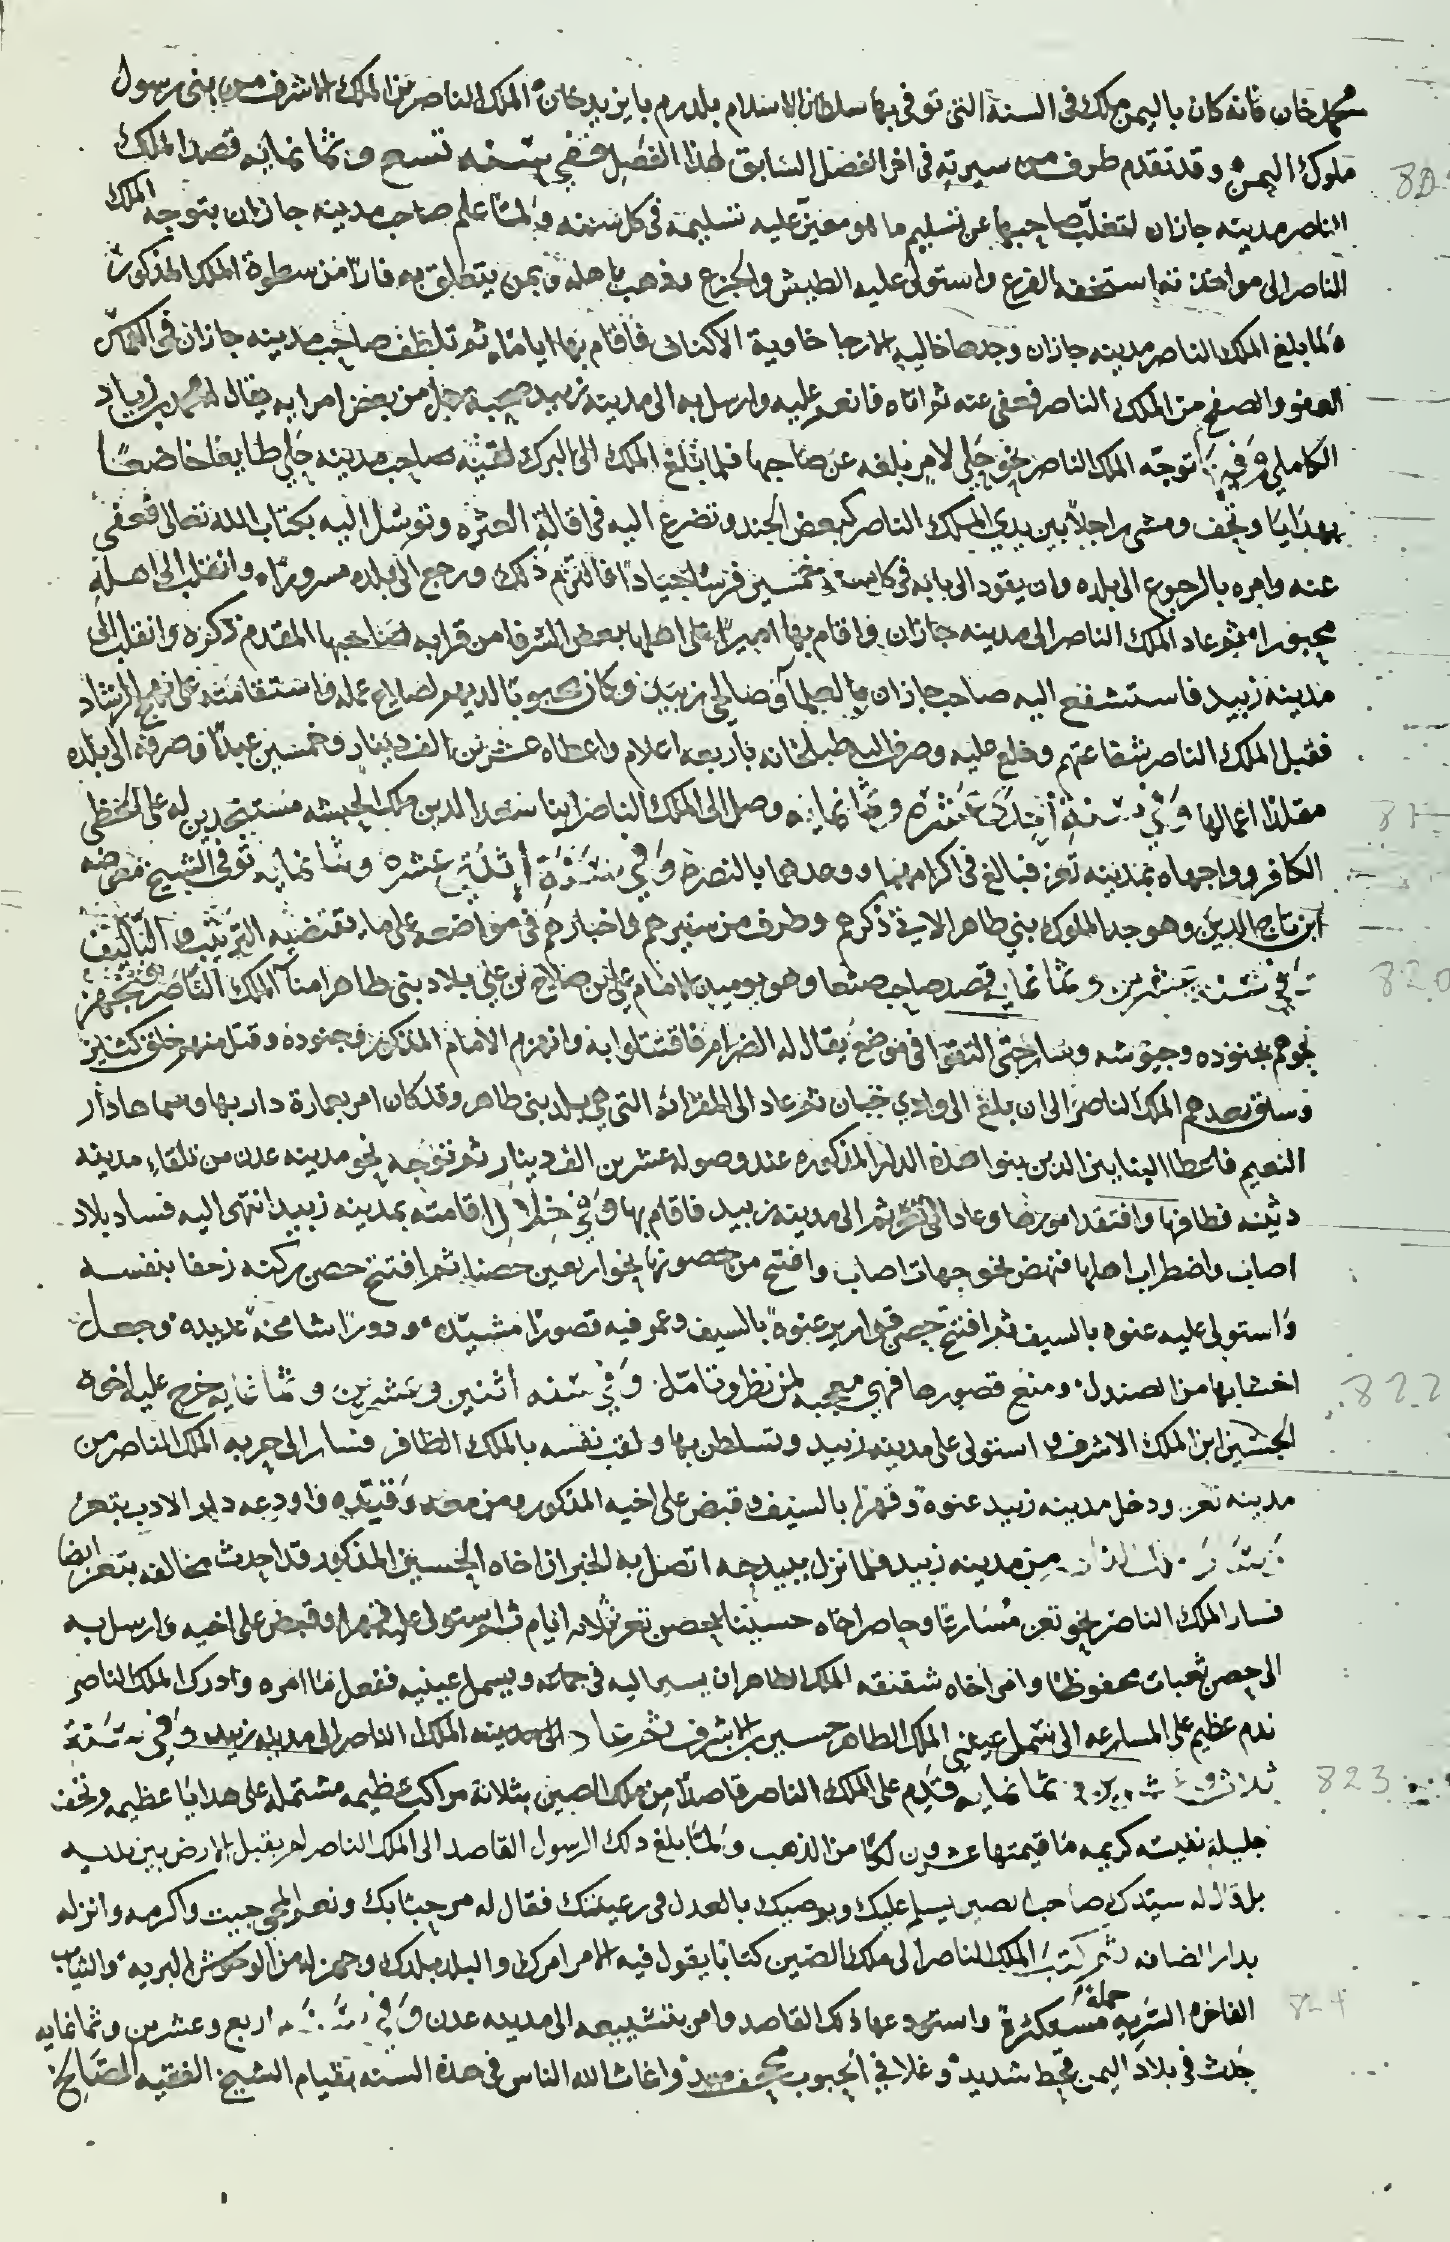 محمد خان فانه كان باليمن ملك فى السنة التى توفى بها سلطان الاسلام يلدرم بايزيد خان الملك الناصر بن الملك الاشرف من بنى رسول
ملوك اليمن وقد تقدم طرف من سيرته فى اخر الفصل السابق لهذا الفصل ففي سنه تسع وثمانمايه قصد الملك
809
الناصر مدينه جازان لتغلب صاحبها عن تسليم ما هو معين عليه تسليمه فى كل سنه ولما علم صاحب مدينه جازان بتوجه الملك
الناصر الى مواخذته استخفه الفزع واستولى عليه الطيش والجزع وذهب باهله وبمن يتعلق به فارا من سطوة الملك المذكور
ولما بلغ الملك الناصر مدينه جازان وجدها خاليه الارجا خاوية الاكناف فاقام بها اياما ثم تلطف صاحب مدينه جازان فى
العفو والصفح من الملك الناصر فعفى عنه ثم اتاه فانعم عليه وارسل به الى مدينه زبيد صحبة رجل من بعض امرايه يقال له محمد بن زياد
الكاملي وفيها توجه الملك الناصر نحو حلي لامر بلغه عن صاحبها فلما بلغ الملك الى البرك لقيه صاحب مدينه حلي طايعا خاضعا
بهدايا وتحف ومشى راجلا بين يدي الملك الناصر كبعض الجند وتضرع اليه فى اقالة العثره وتوسل اليه بكتاب الله تعالى فعفى
عنه وامره بالرجوع الى بلده وان يقود الى بابه فى كل سنة خمسين فرسا جيادا فالتزم ذلك ورجع الى بلده مسرورا وانقلب الى اهله
محبورا ثم عاد الملك الناصر الى مدينه جازان واقام بها اميرا على اهلها بعض الشرفا من قرابه صاحبها المقدم ذكره وانقلب الى
مدينه زبيد فاستشفع اليه صاحب جازان بالعلما وصالحي زبيد وكان محبوبا لديهم لصلاح عمله واستقامته على نهج الرشاد
فقبل الملك الناصر شفاعتهم وخلع عليه وصرف اليه طبلخانه باربعه اعلام واعطاه عشرين الف دينار وخمسين عبدا وصرفه الى بلده
مقلدا اعمالها وفي سنة احدى عشره وثمانمايه وصل الى الملك الناصر ابنا سعد الدين ملك الحبشه مستنجدين له على الحطي
81
الكافر وواجهاه بمدينه تعز فبالغ فى اكرامهما ووعدهما بالنصره وفي سنة عشره وثمانمايه توفى الشيخ معوضه
ابن تاج الدين وهو جد الملوك بني طاهر الاتي ذكرهم وطرف من سيرهم واخبارهم فى مواضعه على ما يقتضيه الترتيب والتاليف
وفي سنة عشرين وثمانمايه قصد صاحب صنعا وهو يوميد الامام علي بن صلاح بن علي بلاد بنى طاهر امنا الملك الناصر فتجهز
820
نحوهم بجنوده وجيوشه وسار حتى التقوا فى موضع يقال له الضرام فاقتتلوا به وانهزم الامام المذكور وجنوده وقتل منهم خلق كثير
وساق بعدهم الملك الناصر الى ان بلغ الى وادي خبان ثم عاد الى المقرانه التى هي بلد بنى طاهر وقد كان امر بعمارة دار بها وسماها دار
النعيم فاعطا البنايين الذين بنوا هذه الدار المذكوره عند وصوله عشرين الف دينار ثم توجه نحو مدينه عدن من تلقاء مدينه
دثينه فطافها وافتقد امورها وعاد الى تعز ثم الى مدينه زبيد فاقام بها وفي خلال اقامته بمدينه زبيد انتهى اليه فساد بلاد
اصاب واضطراب اهلها فنهض نحو جهات اصاب وافتتح من حصونها نحوا ربعين حصنا ثم افتتح حصن ركبه زحفا بنفسه
واستولى عليه عنوه بالسيف ثم افتتح حصن قوارير عنوة بالسيف وعمر فيه قصورا مشيده ودورا شامخه عديده وجعل
اخشابها من الصندل ومنع قصورها فهي معجبه لمن نظر وتامل وفي سنه اثنين وعشرين وثمانمايه خرج عليه اخوه
822
الحسين ابن الملك الاشرف واستولى على مدينه زبيد وتسلطن بها ولقب نفسه بالملك الظافر فسار الى حربه الملك الناصر من
مدينه تعز ودخل مدينه زبيد عنوة وقهرا بالسيف وقبض على اخيه المذكور ومن معه وقيده واودعه دار الادب بتعز
من مدينه زبيد فلما نزل اتصل به الخبر ان اخاه الحسين المذكور قد احدث مخالفه بتعز ايضا
فسار الملك الناصر نحو تعز مسارعا وحاصر اخاه حسينا بحصن تعز ثلاثه ايام ثم استولى عليه قهرا وقبض على اخيه وارسل به
الى حصن ثعبات محفوظا وامر اخاه شقيقه الملك الظاهر ان يسير اليه فى جماعه ويسمل عينيه ففعل ما امره وادرك الملك الناصر
ندم عظيم على المسارعه الى سمل عيني الملك الظاهر حسين بن الاشرف ثم عاد الملك الناصر الى مدينه زبيد وفي سنة
ثلاث وعشرين وثمانمايه قدم على الملك الناصر قاصدا من ملك الصين بثلاثة مراكب عظيمه مشتمله على هدايا عظيمه وتحف
823
جليله نفيسه كريمه ما قيمتها عشرون لكا من الذهب ولما بلغ ذلك الرسول القاصد الى الملك الناصر لم يقبل الارض بين يديه
بل قال له سيدك صاحب الصين يسلم عليك ويوصيك بالعدل فى رعيتك فقال له مرحبا بك ونعم المجى جيت واكرمه وانزله
بدار الضيافه ثم كتب الملك الناصر الى ملك الصين كتابا يقول فيه الامر امرك والبلد بلدك وجهز له من الوحوش البريه والثياب
الفاخره السريه جملة مستكثرة واستودعها ذلك القاصد وامر بتشييعه الى مدينه عدن وفي سنة اربع وعشرين وثمانمايه
824
حدث فى بلاد اليمن قحط شديد وغلا في الحبوب واغاث الله الناس فى هذه السنه بقيام الشيخ الفقيه الصالح